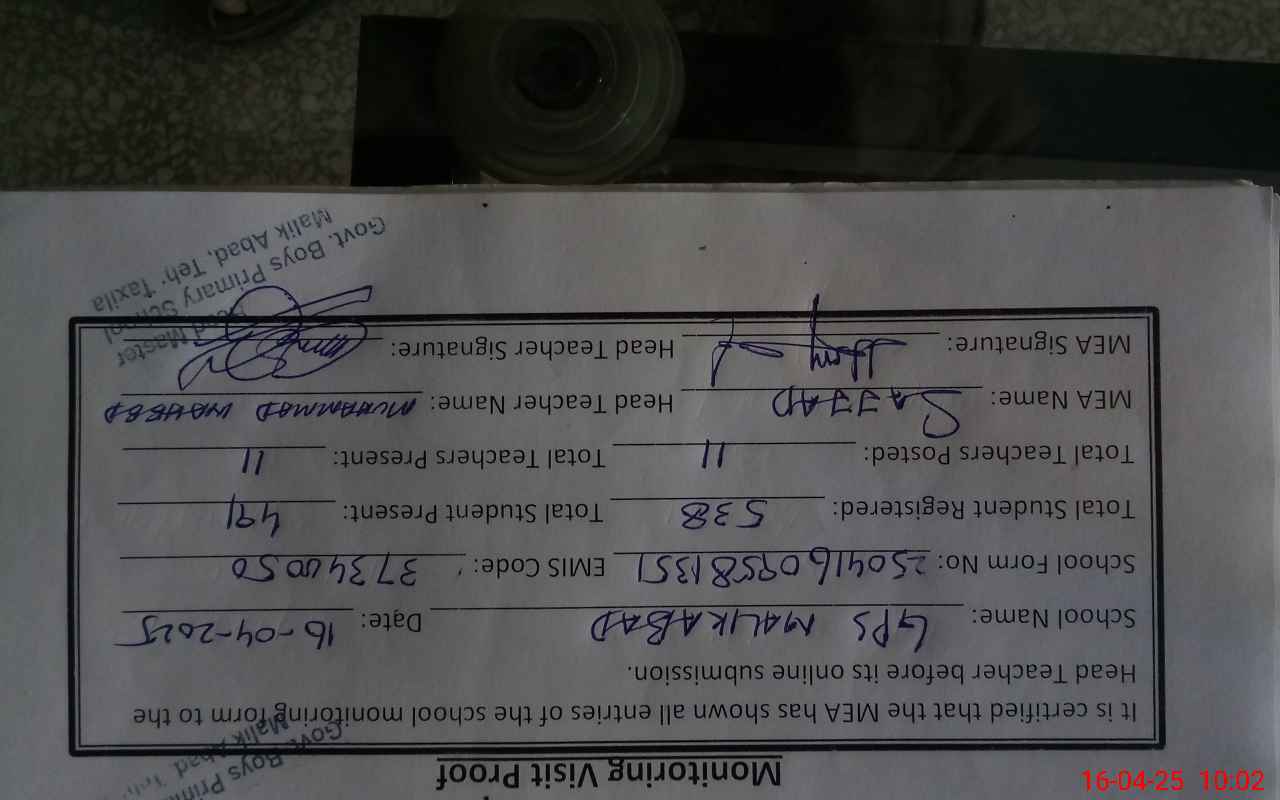 Monitoring Visit Proof
It is certified that the MEA has shown all entries of the school monitoring form to the
Head Teacher before its online submission.
School Name: GPS MALIKABAD Date: 16-04-2025
School Form No: 25041609581351 EMIS Code: 37340050
Total Student Registered: 538 Total Student Present: 491
Total Teachers Posted: 11 Total Teachers Present: 11
MEA Name: SAJJAD Head Teacher Name: MUHAMMAD WAHEED
MEA Signature: Head Teacher Signature:
Head Master
Govt. Boys Primary School
Malik Abad, Teh: Taxila
Govt. Boys
Malik Abad
16-04-25 10:02